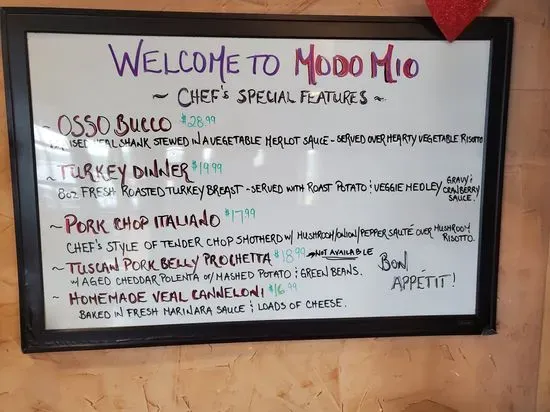 WELCOME TO MODO MIO
~ CHEF'S SPECIAL FEATURES ~
~ OSSO BUCCO $28.99
VEAL SHANK STEWED IN A VEGETABLE MERLOT SAUCE - SERVED OVER HEARTY VEGETABLE RISOTTO
~ TURKEY DINNER $19.99
8oz FRESH ROASTED TURKEY BREAST - SERVED WITH ROAST POTATO & VEGGIE MEDLEY GRAVY & CRANBERRY SAUCE.
~ PORK CHOP ITALIANO $17.99
CHEF'S STYLE OF TENDER CHOP SMOTHERD W/ MUSHROOM/ONION/PEPPER SAUTÉ OVER MUSHROOM RISOTTO.
~ TUSCAN PORK BELLY PROCHETTA $18.99 NOT AVAILABLE
W/ AGED CHEDDAR POLENTA OR/ MASHED POTATO & GREEN BEANS.
BON APPÉTIT!
~ HOMEMADE VEAL CANNELONI $16.99
BAKED IN FRESH MARINARA SAUCE & LOADS OF CHEESE.